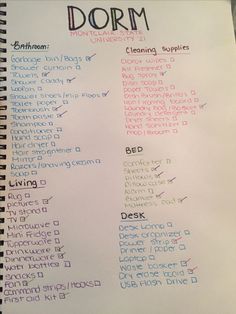 DORM
MONTCLAIR STATE
UNIVERSITY '21
Bathroom:
Garbage bin/Bags
Shower curtain
Towels
Shower caddy
Loofah
Shower shoes/Flip Flops
Toilet paper
Tooth paste
Shampoo
Conditioner
Hand soap
Hair dryer
Hair straightener
Mirror
Razors/shaving cream
Soap
Living
Rug
pictures
TV stand
TV
Microwave
Mini Fridge
Tupperware
Drinkware
Dinnerware
Water bottles
Snacks
Fan
Command strips/Hooks
First aid Kit
Cleaning Supplies
Clorox wipes
Air Freshener
Bug spray
Dish soap
Paper Towels
Dish Brush/
Iron + ironing board
Laundry bag/Basket
Laundry detergent
Dryer sheets
Hand sanitizer
Mop/Broom
BED
Comforter
Sheets
Pillows
Pillow case
Alarm
Mattress pad
DESK
Desk lamp
Desk organizer
Power strip
Printer/paper
Laptop
Waste basket
Dry erase board
USB Flash Drive